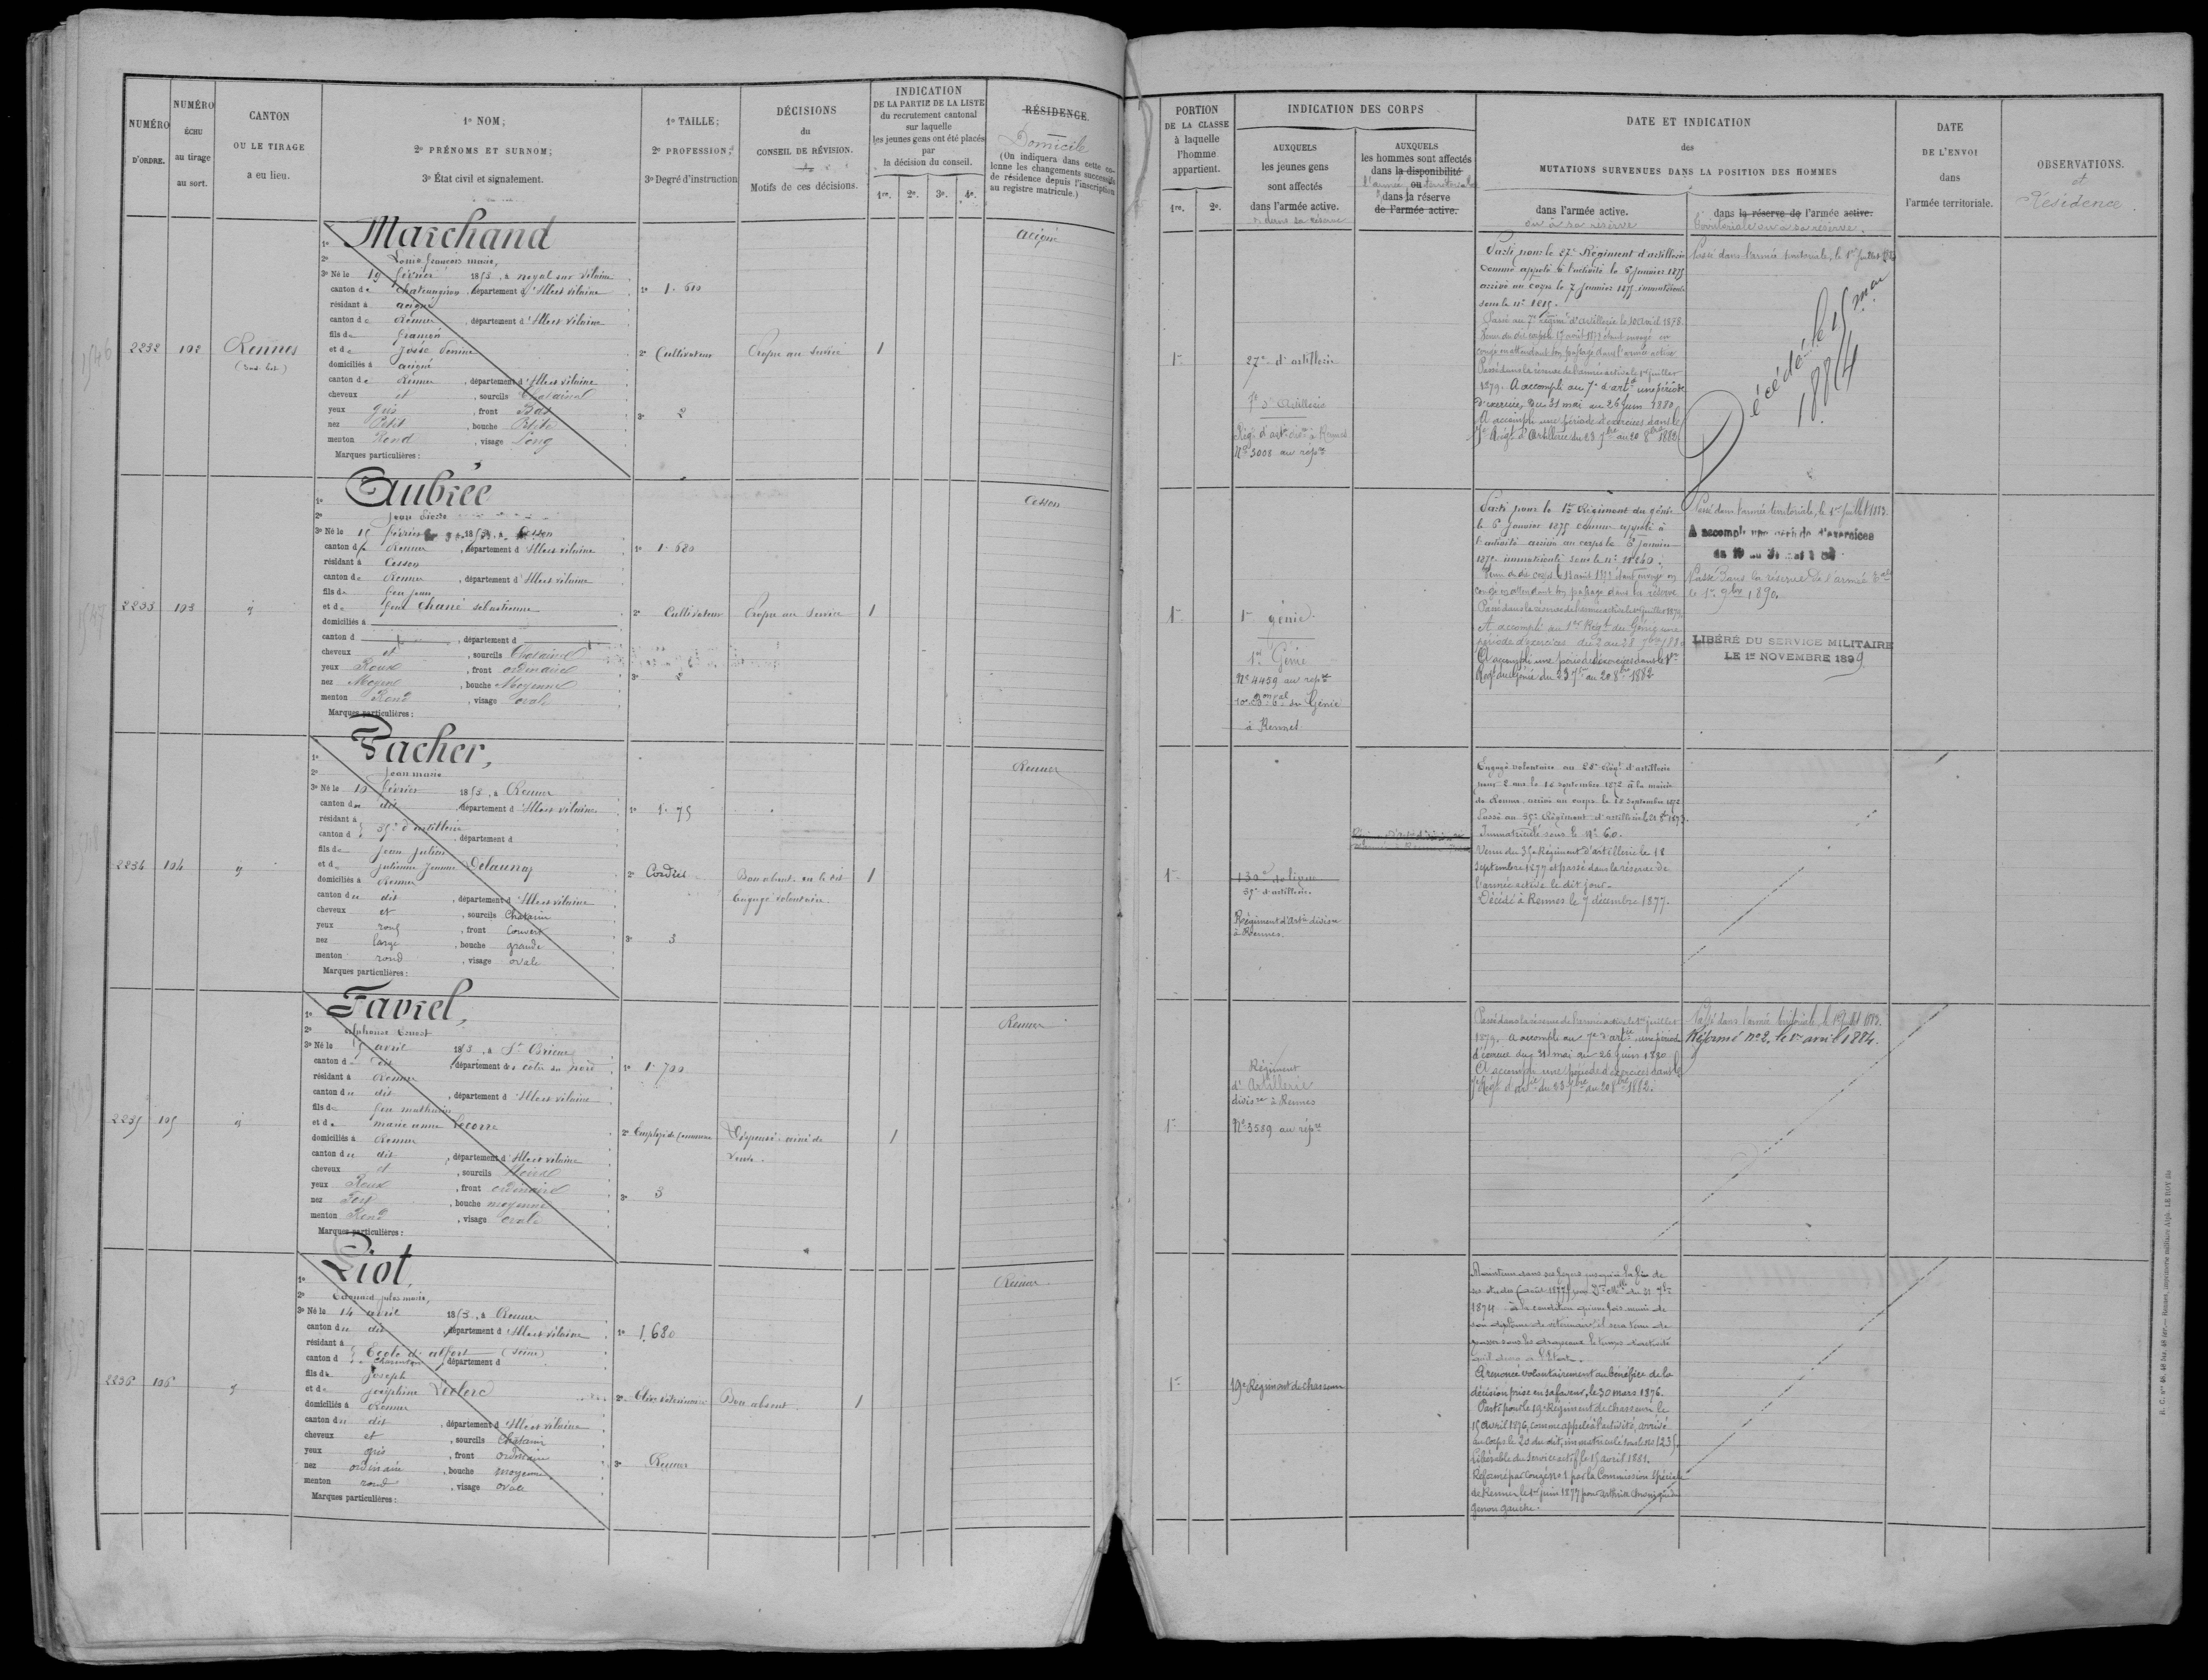 NUMÉRO
D'ORDRE.
NUMÉRO
ÉCHU
au tirage
au sort.
CANTON
OU LE TIRAGE
a eu lieu.
1º NOM;
2º PRÉNOMS ET SURNOM;
3º État civil et signalement.
1º TAILLE;
2º PROFESSION;
3º Degré d'instruction
DÉCISIONS
du
CONSEIL DE RÉVISION.
Motifs de ces décisions.
INDICATION
DE LA PARTIE DE LA LISTE
du recrutement cantonal
sur laquelle
les jeunes gens ont été placés
par
la décision du conseil.
1re. 2e. 3e. 4e.
RÉSIDENCE.
Domicile
(On indiquera dans cette co-
lonne les changements successifs
de résidence depuis l'inscription
au registre matricule.)
PORTION
DE LA CLASSE
à laquelle
l'homme
appartient.
1re. 2e.
INDICATION DES CORPS
AUXQUELS
les jeunes gens
sont affectés
dans l'armée active.
AUXQUELS
les hommes sont affectés
dans la disponibilité
ou
dans la réserve
de l'armée active.
DATE ET INDICATION
des
MUTATIONS SURVENUES DANS LA POSITION DES HOMMES
dans l'armée active.
ou à sa réserve
dans la réserve de l'armée active.
territoriale ou à sa réserve.
DATE
DE L'ENVOI
dans
l'armée territoriale.
OBSERVATIONS.
et
Résidence.
2232 102 Rennes
1º Marchand
2º Louis françois marie,
3º Né le 19 février 1853, à noyal sur Vilaine
canton de chateaugiron, département d'Ille et vilaine
résidant à acigné
canton de Rennes, département d'Ille et Vilaine
fils de françois
et de
domiciliés à acigné
canton de Rennes, département d'Ille et vilaine
cheveux et, sourcils Chatains
yeux gris, front Bas
nez Petit, bouche Petite
menton Rond, visage Long
Marques particulières:
2º Cultivateur
3º 2
Propre au service
1
acigné
27e d'artillerie
7e d'Artillerie
Nº 3008 au répre
Parti pour le 27e Régiment d'artillerie
comme appelé à l'activité le 6 janvier 1875
arrivé au corps le 7 janvier 1875 immatriculé
Passé au 7e régimt d'artillerie le 10 avril 1878.
congé en attendant son passage dans l'armée active
Passé dans la réserve de l'armée active le 1er juillet
1879. A accompli au 7e d'artie une période
d'exercices du 31 mai au 26 juin 1880.
A accompli une période d'exercices dans le
7e Régt d'Artillerie du 23 7bre au 20 8bre 1882.
Passé dans l'armée territoriale, le 1er juillet 1883
Décédé le 15 mai
1884
2233 103 d
1º Aubrée
2º Jean Pierre
3º Né le 15 février 1853, à Cesson
canton de Rennes, département d'Ille et vilaine
résidant à Cesson
canton de Rennes, département d'Ille et vilaine
fils de feu jean
et de feue Chané sébastienne
domiciliés à
canton d, département d
cheveux et, sourcils Chatains
yeux Roux, front ordinaire
nez Moyen, bouche Moyenne
menton Rond, visage ovale
Marques particulières:
1º 1.680
2º Cultivateur
3º 2
Propre au service
1
Cesson
1er génie
1er Génie
Nº 4459 au répre
à Rennes
Parti pour le 1er Régiment du génie
le 6 janvier 1875 comme appelé à
l'activité arrivé au corps le 8 janvier
congé en attendant son passage dans la réserve
Passé dans la réserve de l'armée active le 1er juillet 1879.
A accompli au 1er Régt du Génie une
période d'exercices du 2 au 28 7bre 1880
A accompli une période d'exercices dans le 1er
Régt du Génie du 23 7bre au 20 8bre 1882
Passé dans l'armée territoriale, le 1er juillet 1883.
A accompli une période d'exercices
Passé dans la réserve de l'armée tale
le 1er 9bre 1890.
LIBÉRÉ DU SERVICE MILITAIRE
LE 1er NOVEMBRE 1899.
2234 104 d
1º Pacher,
2º Jean marie
3º Né le 15 février 1853, à Rennes
canton du dit, département d'Ille et vilaine
résidant à
canton d } 35e d'artillerie, département d
fils de jean julien
et de julienne jeanne Delaunay
domiciliés à Rennes
canton du dit, département d'Ille et vilaine
cheveux et, sourcils Chatain
yeux roux, front Couvert
nez large, bouche grande
menton rond, visage ovale
Marques particulières:
1º 1.75
2º Cordier
3º 3
Bon absent
Engagé volontaire.
1
Rennes
130e de ligne
35e d'artillerie.
Régiment d'Artie divisre
à Rennes.
Engagé volontaire au 28e Régt d'artillerie
le 16 septembre 1872 à la mairie
de Rennes arrivé au corps le 18 septembre 1872
Passé au 35e Régiment d'artillerie
Immatriculé sous le Nº 60.
Venu du 35e Régiment d'artillerie le 18
septembre 1877 et passé dans la réserve de
l'armée active le dit jour.
Décédé à Rennes le 7 décembre 1877.
2235 105 d
1º Favrel,
2º Alphonse Ernest
3º Né le 15 avril 1853, à St Brieuc
canton du dit, département des côtes du nord
résidant à Rennes
canton du dit, département d'Ille et vilaine
fils de feu mathurin
et de marie anne Lecorre
domiciliés à Rennes
canton du dit, département d'Ille et vilaine
cheveux et, sourcils Noirs
yeux Roux, front ordinaire
nez Fort, bouche moyenne
menton Rond, visage ovale
Marques particulières:
1º 1.700
2º Employé de Commerce
3º 3
Dispensé: ainé de
veuve.
1
Rennes
Régiment
d'Artillerie
divisre à Rennes
Nº 3589 au répre
Passé dans la réserve de l'armée active le 1er juillet
1879. A accompli au 7e d'artie une période
d'exercices du 31 mai au 26 juin 1880
A accompli une période d'exercices dans le
7e Régt d'artie du 23 7bre au 20 8bre 1882.
Passé dans l'armée territoriale, le 1er juillet 1883.
Réformé nº 2, le 1er avril 1884.
2236 106 d
1º Liot,
2º Edouard jules marie,
3º Né le 14 avril 1853, à Rennes
canton du dit, département d'Ille et vilaine
résidant à
canton d } Ecole d'alfort (Seine)
Charenton, département d
fils de joseph
et de joséphine Leclerc
domiciliés à Rennes
canton du dit, département d'Ille et vilaine
cheveux et, sourcils Chatain
yeux gris, front ordinaire
nez ordinaire, bouche moyenne
menton rond, visage ovale
Marques particulières:
1º 1.680
2º Elève vétérinaire
Bon absent
1
Rennes
19e Régiment de chasseurs
Maintenu dans ses foyers jusqu'à la fin de
1874 à la condition qu'une fois muni de
son diplôme de vétérinaire, il sera tenu de
passer sous les drapeaux le temps d'activité
A renoncé volontairement au bénéfice de la
décision prise en sa faveur, le 30 mars 1876.
Parti pour le 19e Régiment de chasseurs le
15 avril 1876, comme appelé à l'activité, arrivé
au corps le 20 du dit, immatriculé sous le nº 1235.
Libérable du service actif le 15 avril 1881.
Réformé par congé nº 1 par la Commission spéciale
de Rennes le 1er juin 1877 pour arthrite chronique du
genou gauche.